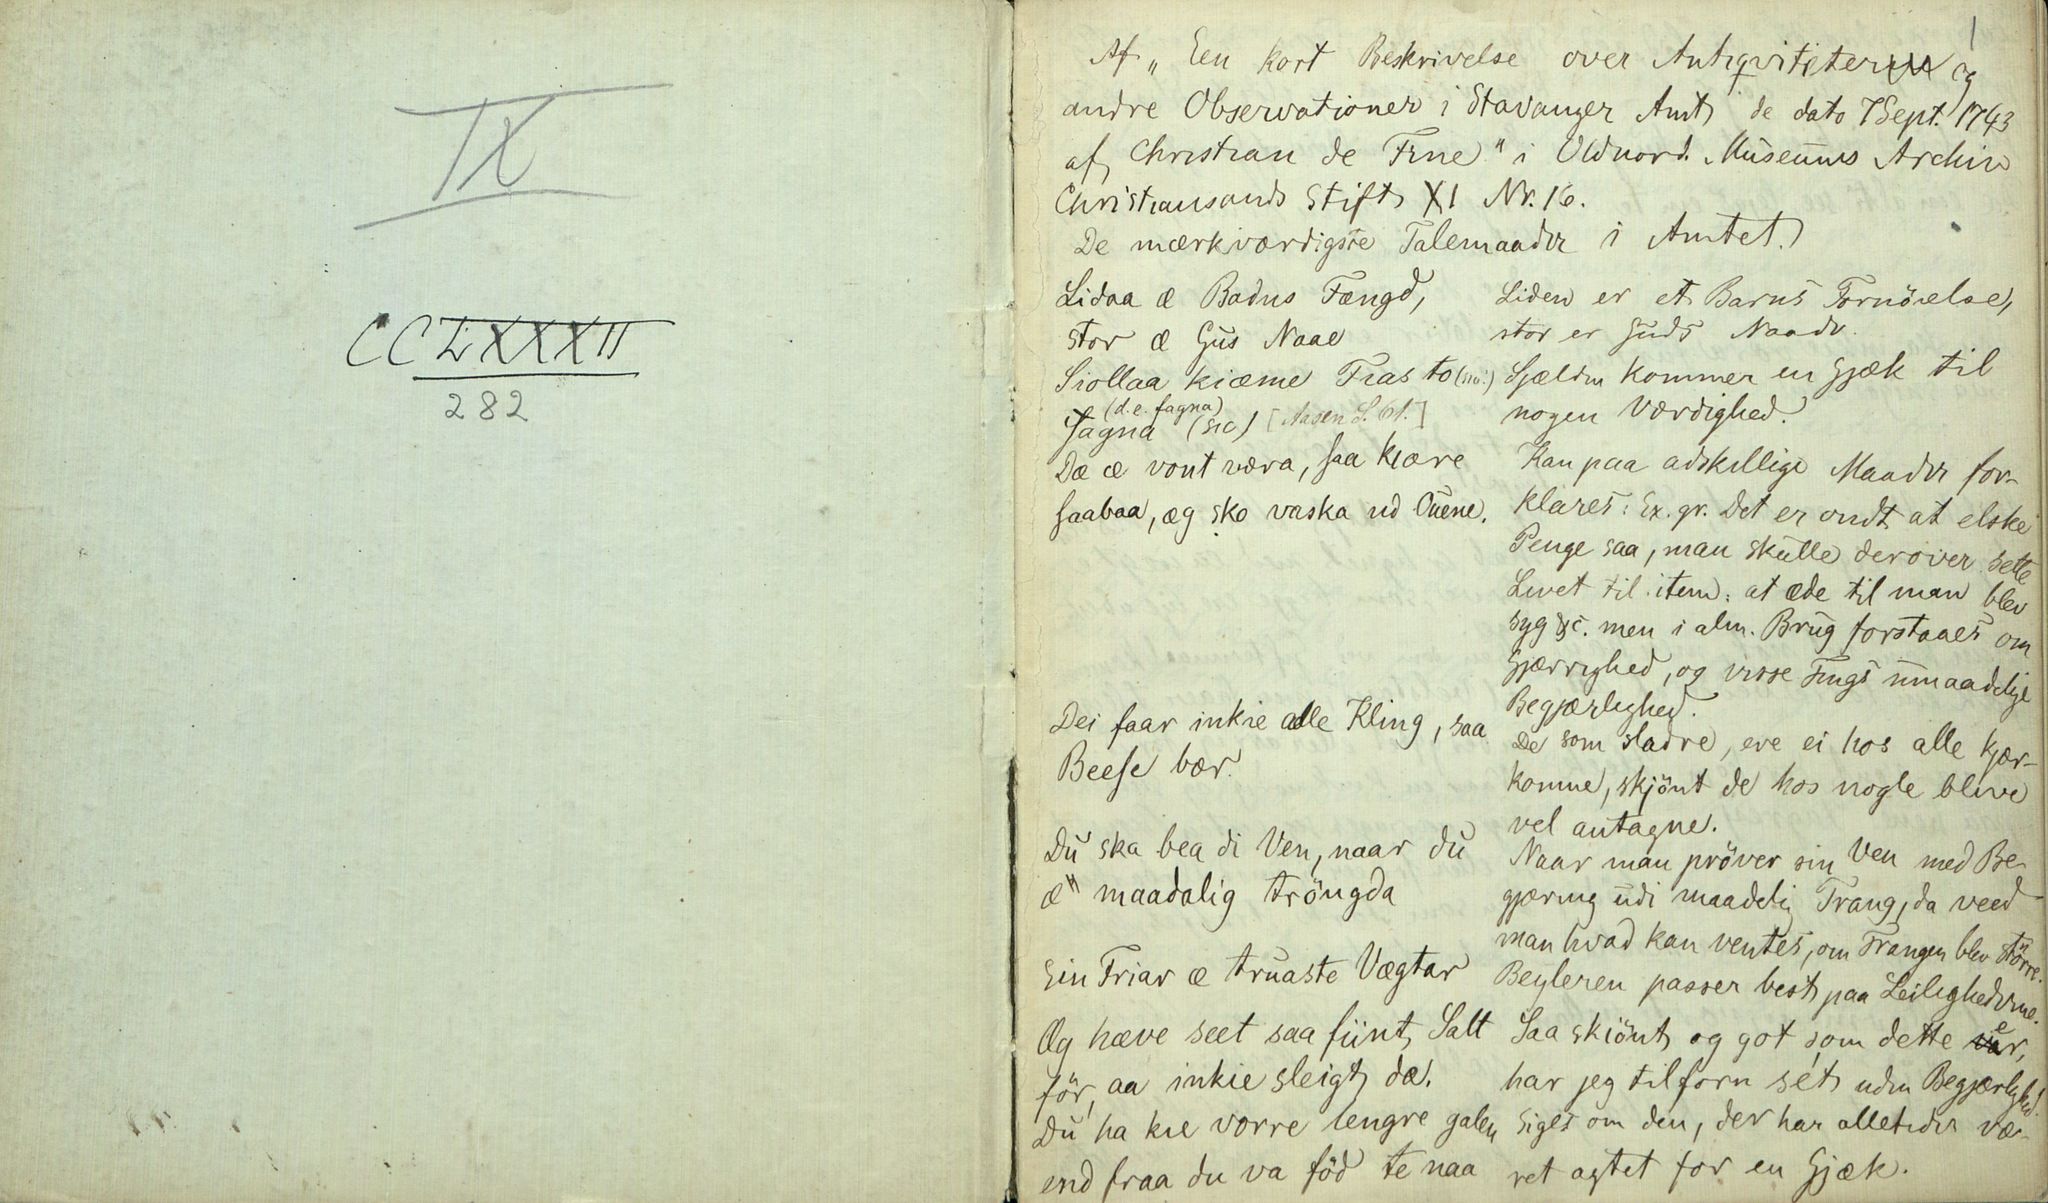 IX
CCLXXXII
282
1
Af „Een kort Beskrivelse over Antiqviteter og
andre Observationer i Stavanger Amt de dato 7 Sept. 1743
af Christian de Fine" i Oldnord. Museums Archiv
Christiansands Stift XI Nr. 16.
De mærkværdigste Talemaader i Amtet.
Lidaa æ Badns Fængd,
stor æ Gus Naae
Siollaa kiæme Fias to (sic!)
(d.e. fagna)
fagna (sic) [Aasen S. 61.]
Dæ æ vont væra, saa kiære
saabaa, æg sko vaska ud Ouene.
Dei faar inkie alle Kling, saa
Beese bær.
Du ska bea di Ven, naar du
æ maadalig tröngda
Ein Friar æ truaste Vægtar
Æg hæve seet saa fiint Salt
för, aa inkie sleigt dæ.
Du ha kie vorre lengre galen
end fraa du va föd te naa
Liden er et Barns Fornöielse,
stor er Guds Naade.
Sjælden kommer en Gjæk til
nogen Værdighed.
Kan paa adskillige Maader for-
klares: Ex. gr. Det er ondt at elske
Penge saa, man skulle derover sette
Livet til. item: at æde til man blev
syg &c. men i alm. Brug forstaaes om
Gjærrighed, og visse Tings umaadelige
Begjærlighed.
De som sladre, ere ei hos alle kjær-
komne, skjönt de hos nogle blive
vel antagne.
Naar man pröver sin Ven med Be-
gjæring udi maadelig Trang, da veed
man hvad kan ventes, om Trangen blev större.
Beyleren passer best paa Leilighederne.
Saa skiönt og got som dette er,
har jeg tilforn sét uden Begjærlighed.
Siges om den, der har alletider væ-
ret agtet for en Gjæk.